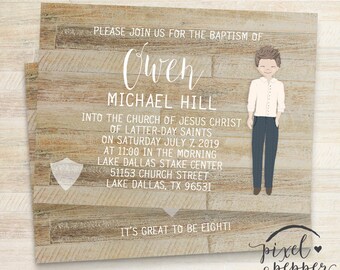 PLEASE JOIN US FOR THE BAPTISM OF
Owen
MICHAEL HILL
INTO THE CHURCH OF JESUS CHRIST
OF LATTER-DAY SAINTS
ON SATURDAY JULY 7, 2019
AT 11:00 IN THE MORNING
LAKE DALLAS STAKE CENTER
51153 CHURCH STREET
LAKE DALLAS, TX 96531
IT'S GREAT TO BE EIGHT!
pixel
pepper